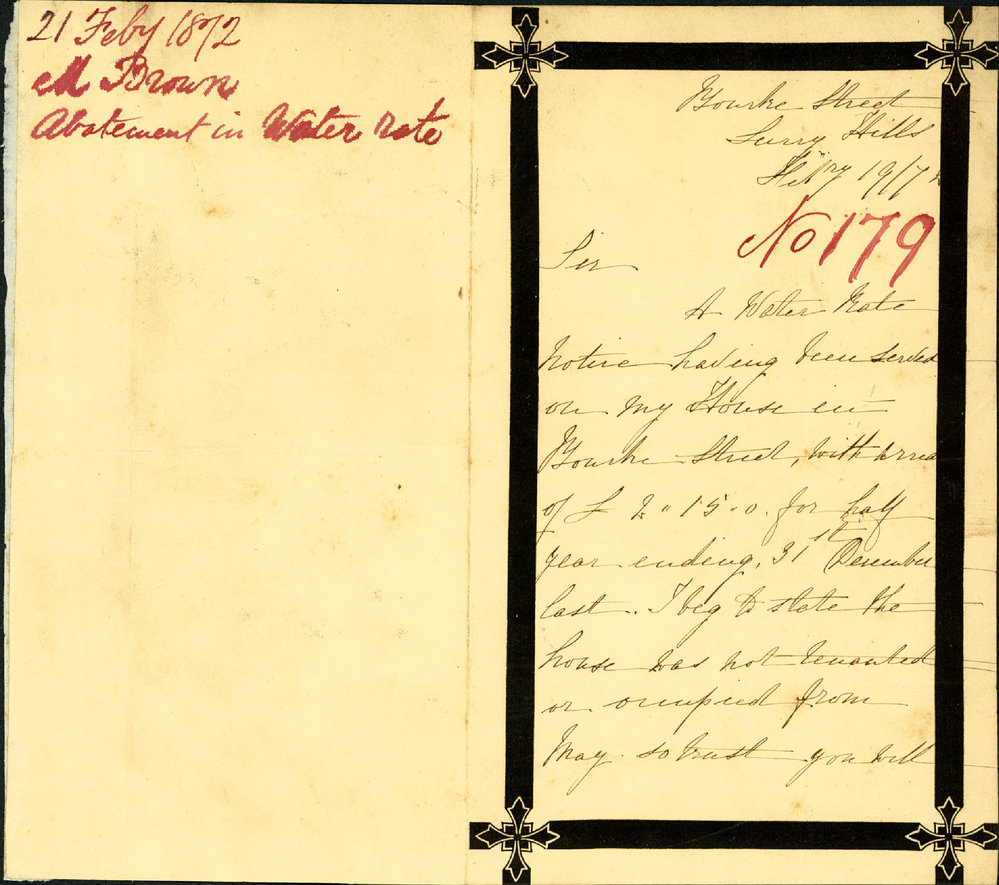 21 Feby 1872
M Brown
Abatement in Water Rate
Bourke Street
Surry Hills
Feb'ry 19/72
No 179
Sir
A Water Rate
Notice having been served
on my House in
Bourke Street, with arrea
of £ 2 " 15 " 0. for half
year ending, 31st December
last. I beg to state the
house was not tenanted
or occupied from
May. so trust you will